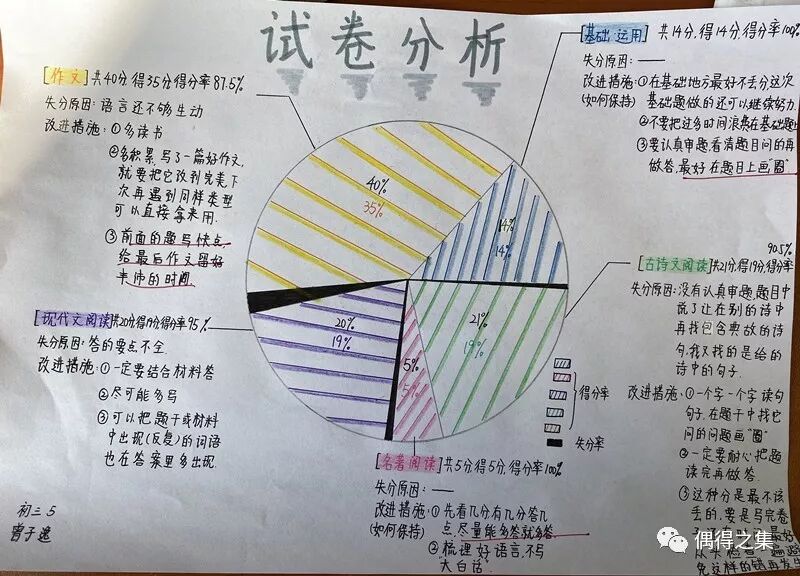 试卷分析
[作文] 共40分,得35分,得分率87.5%
失分原因:语言还不够生动
改进措施:①多读书
②多积累,写了一篇好作文,
就要把它改到完美,下
次再遇到同样类型
可以直接拿来用.
③前面的题写快点
给最后作文留好
[现代文阅读]共20分得19分得分率95%
失分原因:答的要点不全
改进措施:①一定要结合材料答
②尽可能多写
③可以把题干或材料
中出现(反复)的词语
也在答案里多出现.
初三5
[基础 运用] 共14分,得14分,得分率100%
失分原因:——
改进措施:①在基础地方最好不丢分,这次
(如何保持) 基础题做的还可以继续努力
②不要把过多时间浪费在基础题
③要认真审题,看清题目问的再
做答,最好在题目上画"圈"
90.5%
[古诗文阅读]共21分,得19分,得分率
失分原因:没有认真审题,题目中
说了让在别的诗中
再找包含典故的诗
句,我又找的是给的
诗中的句子.
改进措施:①一个字一个字读句
句子,在题干中找它
问的问题画"圈"
②一定要耐心把题
读完再做答.
③这种分是最不该
丢的,要是写完卷
免这样的错再发生
[名著阅读]共5分,得5分,得分率100%
失分原因:——
改进措施:①先看几分有几分答几
(如何保持) 点,尽量能多答就多答.
②梳理好语言,不写
"大白话"
40%
35%
14%
14%
20%
19%
5%
5%
21%
19%
得分率
失分率
偶得之集